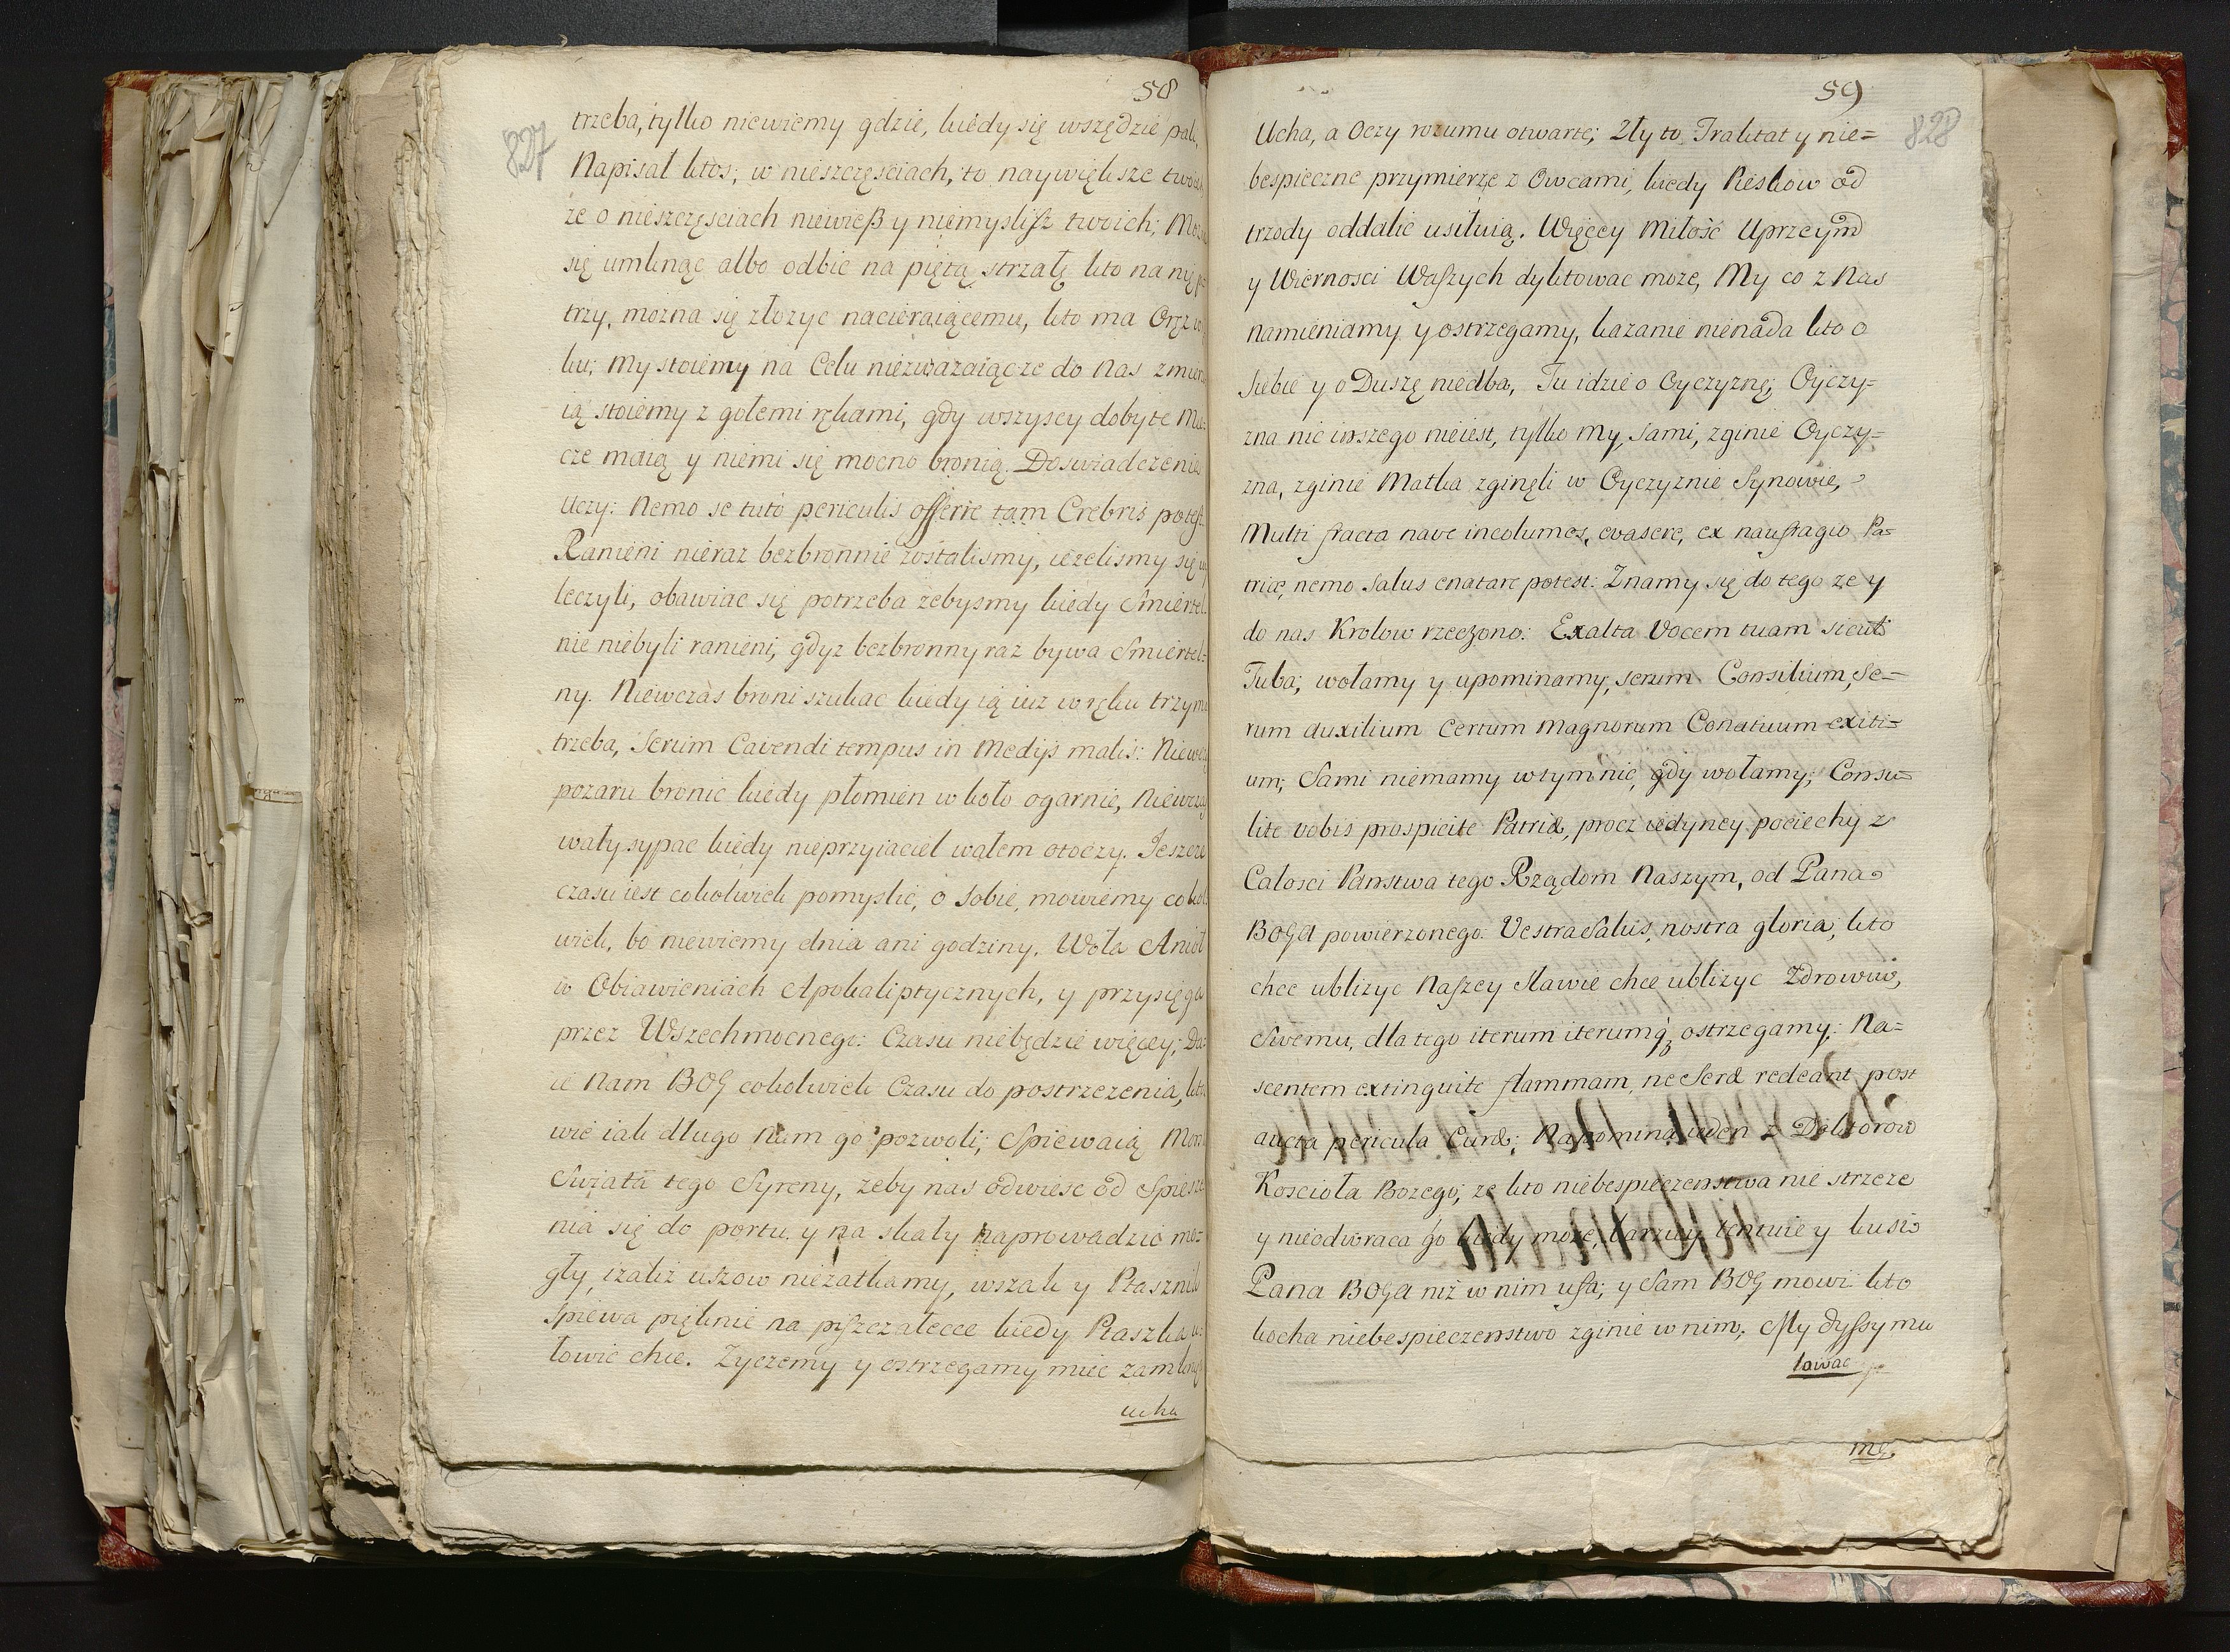 58
827
trzeba, tylko niewiemy gdzie, kiedy się wszędzie pali,
Napisał ktos; w nieszczęsciach, to naywiększe twoie,
ze o nieszczęsciach niewieß y niemyslisz twoich;
się umknąc albo odbic na piętą strzałę kto na nię
trzy, mozna się złozyc nacieraiącemu, kto ma Oręz
ku; My stoiemy na Celu niezwazaiąc ze do Nas
ią stoiemy z gołemi rękami, gdy wszyscy dobyte Mie-
cze maią y niemi się mocno bronią. Doswiadczenie
Uczy: Nemo se tuto periculis offerre tam Crebris potest
Ranieni nieraz bezbronnie zostalismy, iezelismy się
leczyli, obawiac się potrzeba zebysmy kiedy Smiertel-
nie niebyli ranieni, gdyz bezbronny raz bywa Smiertel-
ny. Niewczas broni szukac kiedy ią iuz w ręku trzymac
trzeba, Serum Cavendi tempus in Medijs malis: Niewczas
pozaru bronic kiedy płomien w koło ogarnie, Niewczas
wały sypac kiedy nieprzyiaciel wałem otoczy. Jeszcze
czasu iest cokolwiek pomyslic, o Sobie, mowiemy cokol
wiek, bo niewiemy dnia ani godziny. Woła Anioł
w Obiawieniach Apokaliptycznych, y przysięga
przez Wszechmocnego: Czasu niebędzie więcey; Da-
ie Nam BOG cokolwiek Czasu do postrzezenia, kto
wie iak długo Nam go pozwoli; Spiewaią
Swiata tego Syreny, zeby nas odwiesc od Spiesze
nia się do portu y na skały naprowadzic mo-
gły, izaliż uszow niezatkamy, wszak y Ptasznik
Spiewa pięknie na piszczałecce kiedy Ptaszka u-
łowic chce. Zyczemy y ostrzegamy miec zamknęte
ucha
59
828
Ucha, a Oczy rozumu otwarte; Zły to Traktat y nie-
bespieczne przymierze z Owcami, kiedy Pieskow od
trzody oddalic usiłuią. Więcey Miłość Uprzeym
y Wiernosci Waszych dyktowac moze, My co z Nas
namieniamy y ostrzegamy, kazanie nienada kto o
Siebie y o Duszę niedba, Tu idzie o Oyczyznę; Oyczy-
zna nic inszego nieiest, tylko My, Sami, zginie Oyczy-
zna, zginie Matka zginęli w Oyczyznie Synowie,
Multi fracta nave incolumes, evasere, ex naufragio Pa-
triæ, nemo Salus enatare potest: Znamy się do tego ze y
do nas Krolow rzeczono: Exalta Vocem tuam sicut
Tuba; wołamy y upominamy; serum Consilium, Se-
rum Auxilium Certum Magnorum Conatuum exiti-
um; Sami niemamy w tym nic, gdy wołamy; Consu-
lite vobis prospicite Patriæ, procz iedyney pociechy z
Całosci Panstwa tego Rządom Naszym, od Pana
BOGA powierzonego: Vestra Salus, nostra gloria; kto
chce ublizyc Naszey Sławie chce ublizyc Zdrowiu,
Swemu, dla tego iterum iterumq; ostrzegamy: Na-
scentem extinguite flammam, ne Seræ redeant post
aucta pericula Curæ; Napomina ieden z Doktorow
Koscioła Bozego; ze kto niebespieczenstwa nie strzeze
y nieodwraca go kiedy moze, barziey tentuie y kusi
Pana BOGA niż w nim ufa; y Sam BOG mowi kto
kocha niebespieczenstwo zginie w nim; My dyssymu
lowac
mę.